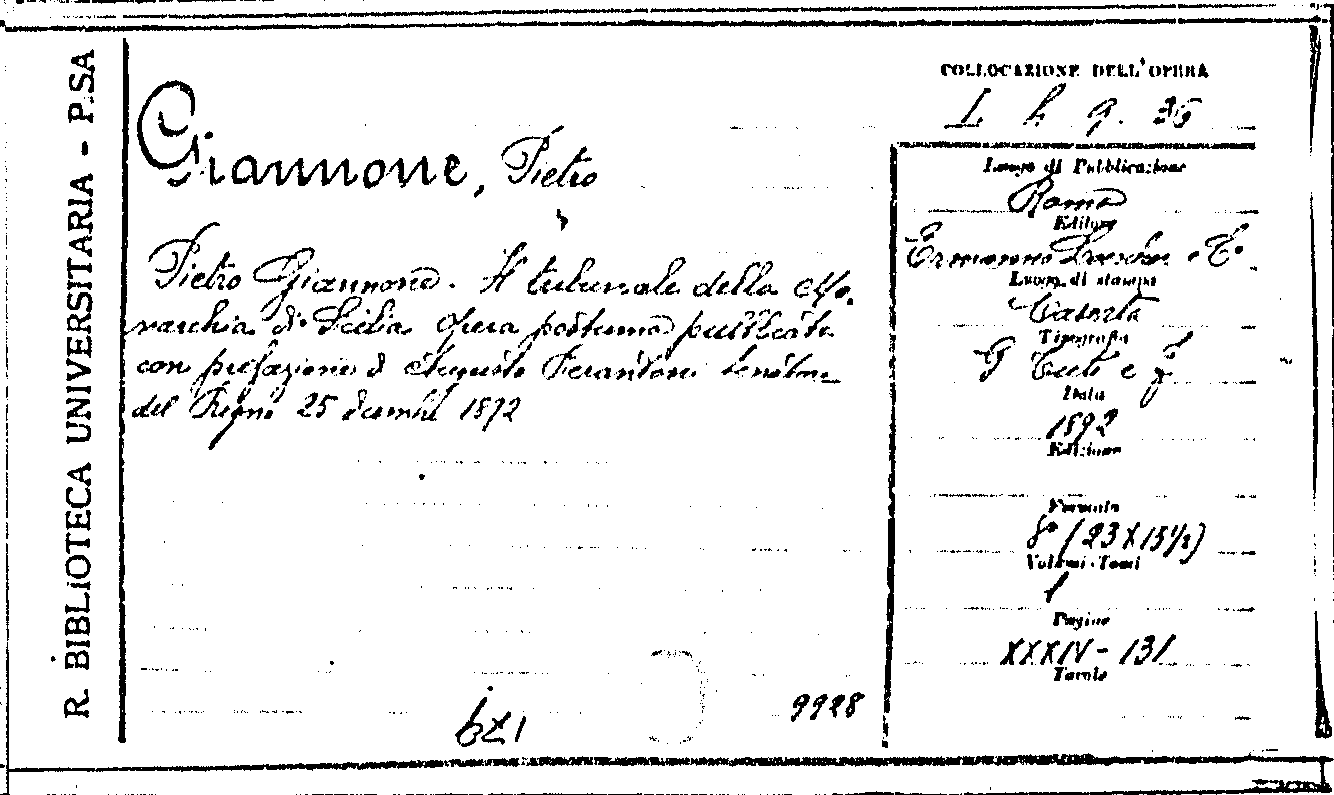 R. BIBLIOTECA UNIVERSITARIA - PISA
Giannone, Pietro
Pietro Giannone. Il tribunale della Mo-
narchia di Sicilia opera postuma pubblicata
con prefazione di Augusto Pierantoni Senatore
del Regno 25 dicembre 1892
621
9928
COLLOCAZIONE DELL'OPERA
L h 9. 36
Luogo di Pubblicazione
Roma
Editore
Ermanno Loescher e C°
Luogo di stampa
Caserta
Tipografia
G
Data
1892
Edizione
Formato
8° (23 X 15½)
Volumi-Tomi
1
Pagine
XXXIV - 131
Tavole